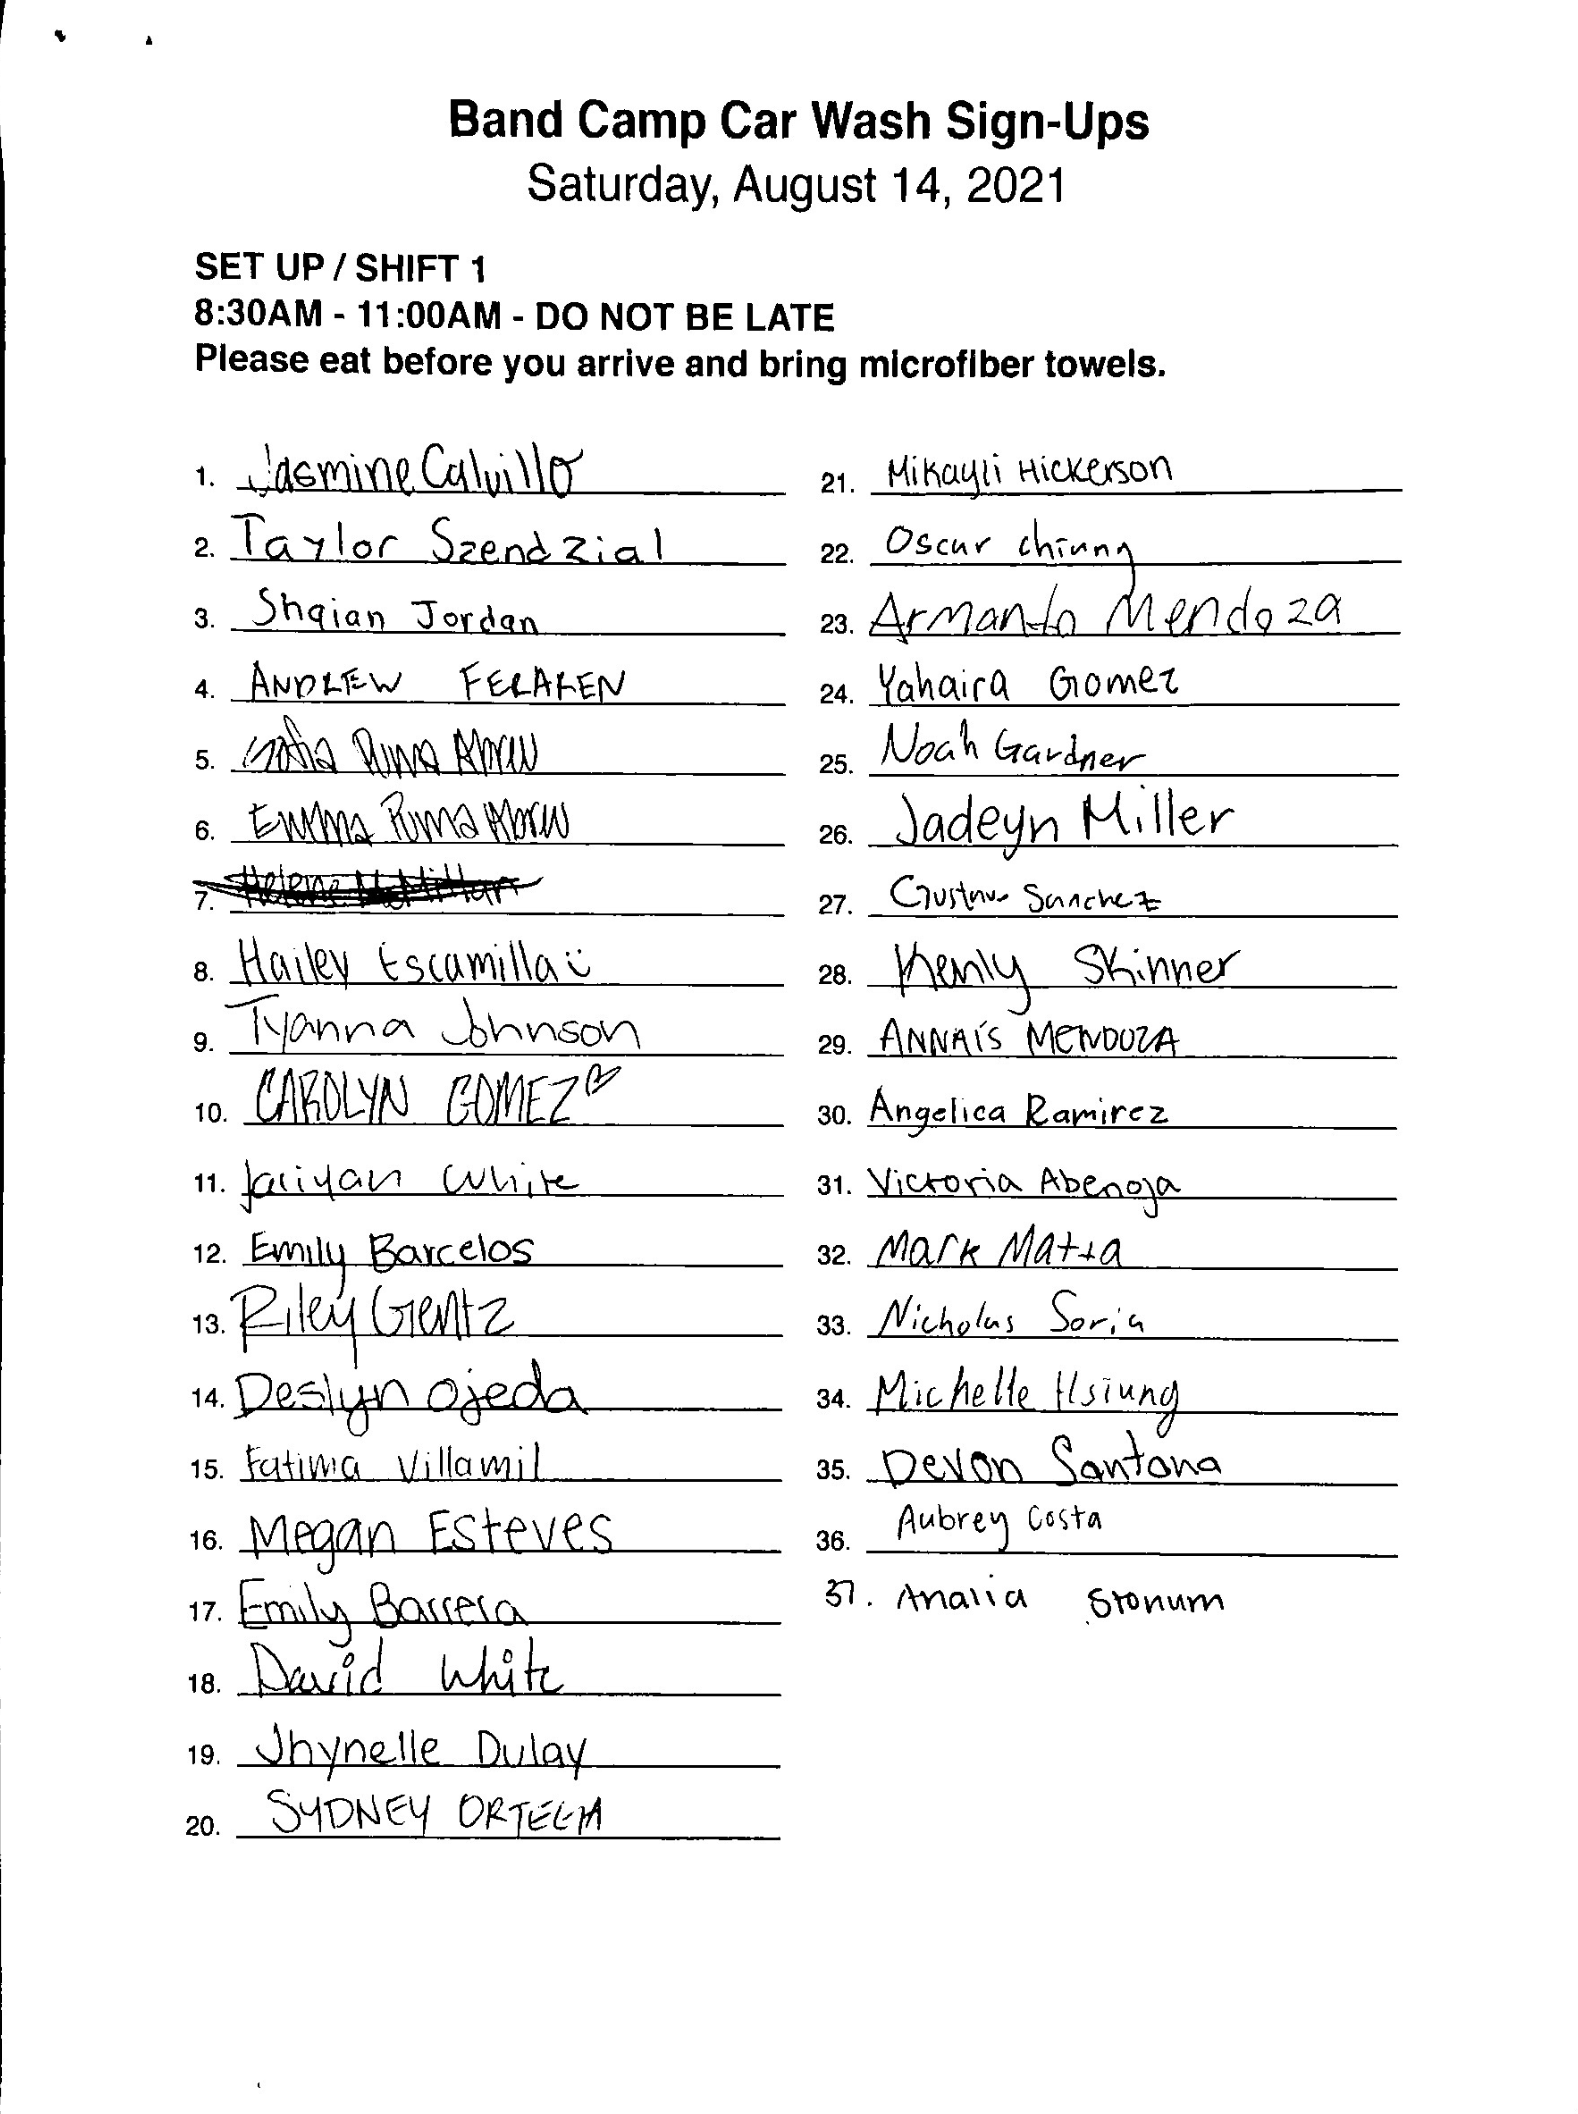 Band Camp Car Wash Sign-Ups
Saturday, August 14, 2021
SET UP / SHIFT 1
8:30AM - 11:00AM - DO NOT BE LATE
Please eat before you arrive and bring microfiber towels.
1. Jasmine Calvillo
2. Taylor Szendzial
3. Shaian Jordan
4. ANDREW FERAREN
5. Sofia Puma Abreu
6. Emma Puma Abreu
7.
8. Hailey Escamilla
9. Tyanna Johnson
10. CAROLYN GOMEZ
11. Jaliyah White
12. Emily Barcelos
13. Riley Gentz
14. Deslyn Ojeda
15. Fatima Villamil
16. Megan Esteves
17. Emily Barrera
18. David White
19. Jhynelle Dulay
20. SYDNEY ORTEGA
21. Mikayli Hickerson
22. Oscar Chiung
23. Armando Mendoza
24. Yahaira Gomez
25. Noah Gardner
26. Jadeyn Miller
27. Gustavo Sanchez
28. Kenly Skinner
29. ANNAÍS MENDOZA
30. Angelica Ramirez
31. Victoria Abenoja
32. Mark Matta
33. Nicholas Soria
34. Michelle Hsiung
35. Devon Santana
36. Aubrey Costa
37. Analia Stonum